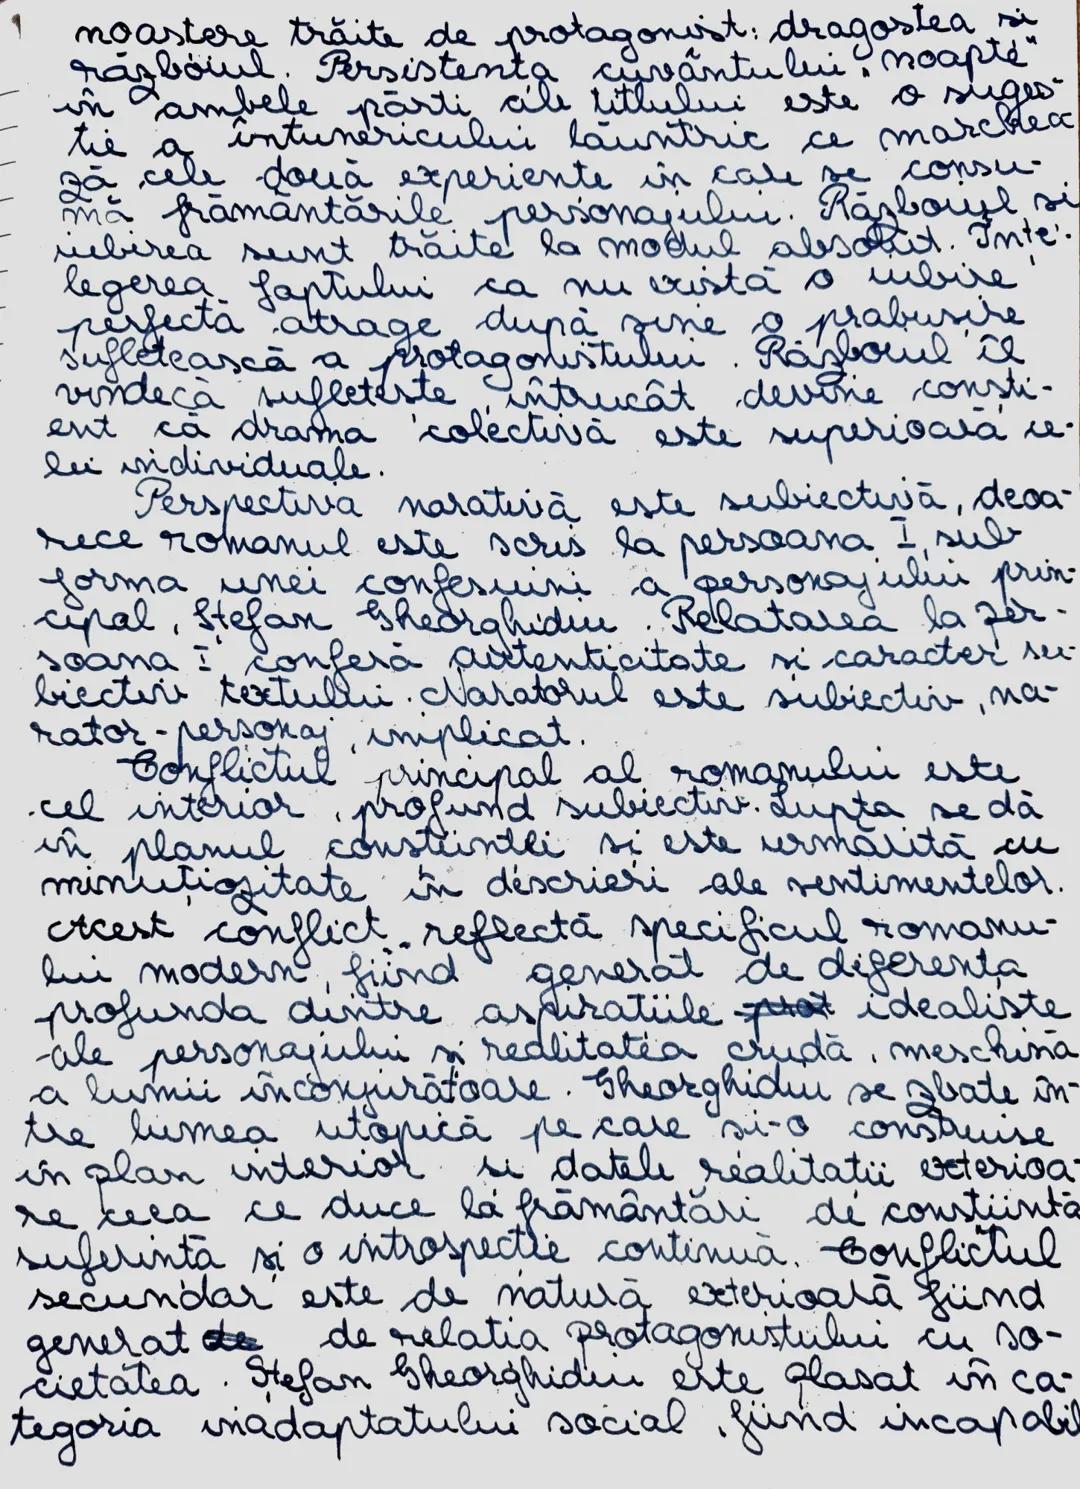 noastere trăite de protagonist: dragostea si
războiul. Persistenta cuvântului „noapte"
în ambele părti ale titlului este o suges-
tie a întunericului lăuntric ce marchea
ză cele două experiente in care se consu-
mă frământările personajului. Războiul si
iubirea sunt trăite la modul absolut. Inte-
legerea faptului ca nu există o iubire
perfectă atrage după sine o prabusire
sufletească a protagonistului. Războiul îl
vindecă sufleteste întrucât devine consti-
ent că drama colectivă este superioară ce-
lei individuale.
Perspectiva narativă este subiectivă, deoa-
rece romanul este scris la persoana I, sub
forma unei confesiuni a personajului prin-
cipal, Stefan Gheorghidiu. Relatarea la per-
soana I conferă autenticitate si caracter su-
biectiv textului. Naratorul este subiectiv, na-
rator-personaj, implicat.
Conflictul principal al romanului este
cel interior, profund subiectiv. Lupta se dă
în planul constiintei si este urmărită cu
minutiozitate în descrieri ale sentimentelor.
Acest conflict reflectă specificul romanu-
lui modern, fiind generat de diferenta
profunda dintre aspiratiile prot idealiste
ale personajului si realitatea crudă, meschină
a lumii inconjurătoare. Gheorghidiu se zbate în-
tre lumea utopică pe care si-o construise
in plan interior si datele realitatii exterioa-
re ceea ce duce la frământări de constiintă
suferintă si o introspectie continuă. Conflictul
secundar este de natură exterioară fiind
generat de de relatia protagonistului cu so-
cietatea. Stefan Gheorghidiu este plasat în ca-
tegoria inadaptatului social, fiind incapabil